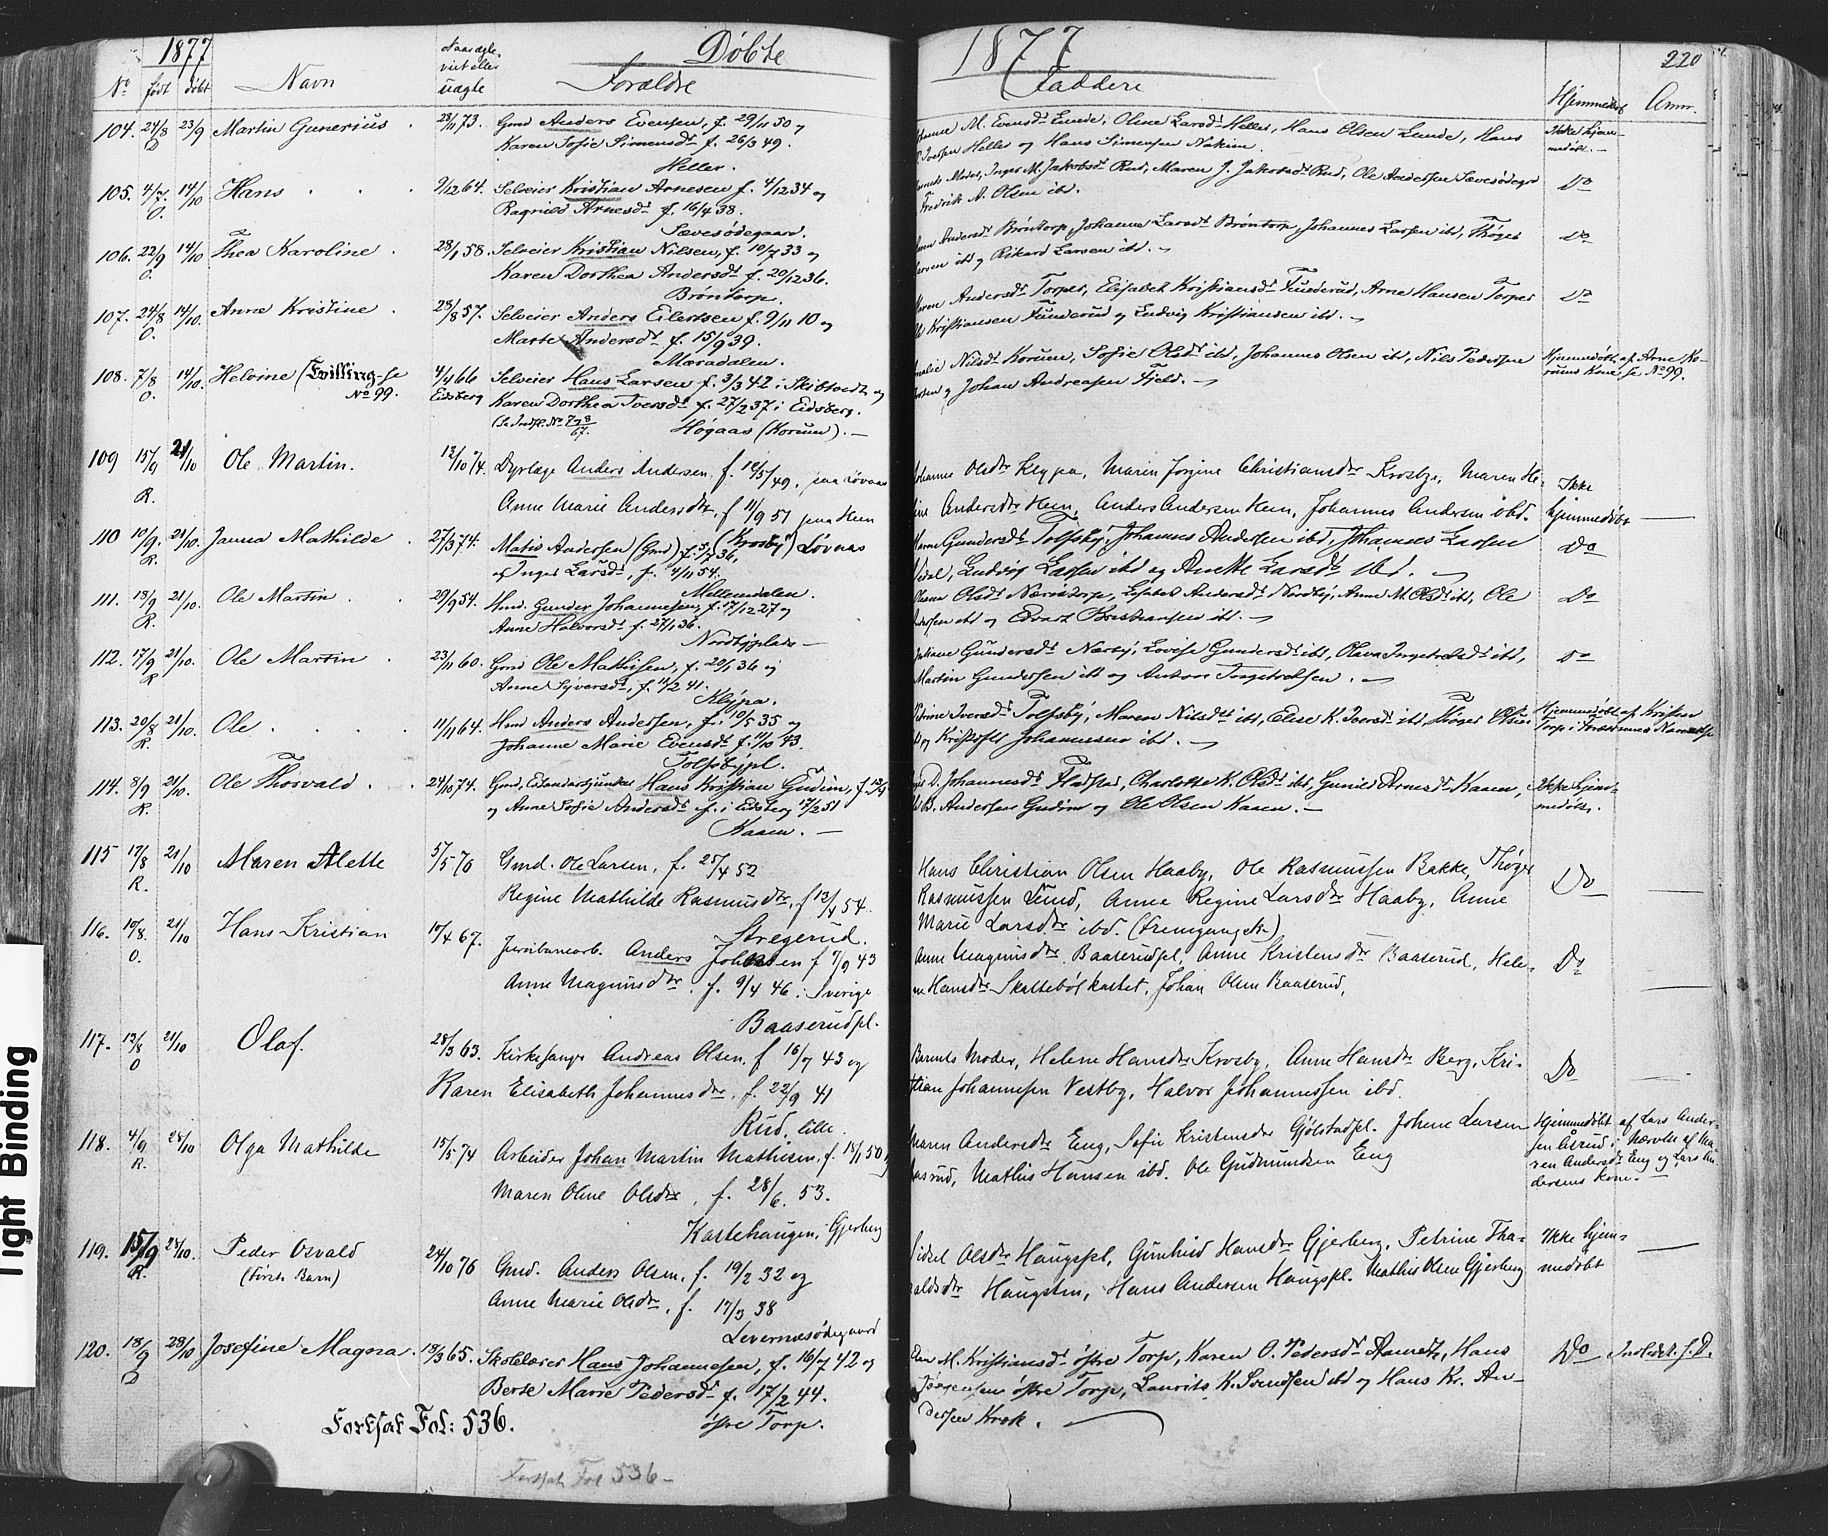 1877 Døbte 1877 220
No født døbt Navn Naar ægteviet eller uægte Forældre Faddere Hjemmedøbt Anm.
104. 24/8 23/9 Martin Gunerius . 28/11 73. Gmd Anders Evensen, f. 29/11 50 og
D Karen Sofie Simensdt f. 26/3 49.
Heller.
M. Evensdt Lunde, Oline Larsdt Heller, Hans Olsen Lunde, Hans
Iversen Heller og Hans Simensen Nakim. Ikke hjemmedøbt. -
105. 4/7. 14/10 Hans . . . 9/12 64. Selveier Kristian Arnesen f. 4/12 34 og
O. Ragnild Arnesdt f. 16/4 38.
Sævesødegaard.
Moder, Inger M. Jakobsdt Rud, Maren J. Jakobsdt Rud, Ole Andersen Sævesødegd Do
Fredrik A. Olsen ibd.
106. 22/9 14/10 Thea Karoline . 28/1 58. Selveier Kristian Nilsen, f. 10/7 33 og
O. Karen Dorthea Andersdt f. 20/12 36.
Brøntorp.
Andersdt Brøntorp, Johanne Larsdt Brøntorp, Johannes Larsen ibd, Thøger Do
Larsen ibd og Rikard Larsen ibd. -
107. 24/8 14/10. Anne Kristine . 23/8 57. Selveier Anders Eilertsen f. 9/11 10 og
O. Marte Andersdt f. 15/9 39.
Maradalen.
Maren Andersdt Torper, Elisabet Kristiansdt Funderud, Arne Hansen Torper Do
Kristiansen Funderud og Ludvig Kristiansen ibd. -
108. 7/8 14/10. Helvine (Tvilling-se 4/4 66 Selveier Hans Larsen f. 3/3 42 i Skibtvedt og
O. No 99. Eidsberg Karen Dorthea Iversdt f. 27/2 37 i Eidsberg.
Høgaas (Korum). -
Nilsdt Korum, Sofie Olsdt ibd, Johannes Olsen ibd, Nils Pedersen Hjemmedøbt af Arne Ko-
og Johan Andreasen Fjeld. - rums Kone, se No 99.
109 15/9 21/10 Ole Martin. 12/10 74. Dyrlæge Anders Andersen f. 12/5 49, paa Løvaas
R. Anne Marie Andersdtr, f 11/9 51 paa Hem
(Krosby) Løvaas
Johannes Olsdtr Kløpa, Maren Jørgine Christiansdtr Krosby, Maren He- Ikke
Andersdtr Hem, Anders Andersen Hem, Johannes Andersen ibd. hjemmedøbt
110 10/9. 21/10. Janna Mathilde . 27/3 74. Matis Andersen (Gmd) f. 5/7 36,
R. og Inger Larsdt, f. 4/11 54.
Mellemdalen.
Maren Gundersdt Tolfsby, Johannes Andersen ibd, Johannes Larsen Do
Ludvig Larsen ibd og Anette Larsdt ibd. -
111. 18/9 21/10. Ole Martin . 29/9 54. Hmd. Gunder Johannesen, f. 17/12 27 og
R. Anne Halvorsdt f. 27/1 36.
Nordbyplads -
Olsdt Næristorp, Lisbet Andersdt Nordby, Anne M. Olsdt ibd, Ole Do
ibd og Edvart Kristiansen ibd. -
112. 17/9 21/10. Ole Martin . 23/11 60. Gmd Ole Mathisen, f. 20/1 36 og
R Anne Syversdt, f. 11/2 41.
Kløpa.
Gundersdt Næsby, Lovise Gundersdt ibd, Olava Ingebretsdt ibd, Do
Martin Gundersen ibd og Anton Ingebretsen. -
113. 20/8 21/10. Ole . . . . 11/11 64. Hmd Anders Andersen, f. 10/5 35 og
R. Johanne Marie Evensdt f. 11/10 43.
Tolfsbypl.
Petrine Iversdt Tolfsby, Maren Nilsdt ibd, Elise K. Iversdt ibd, Thøger Olsen Hjemmedøbt af Kristen
og Kristoffer Johannesen ibd. -
114. 8/9 21/10. Ole Thorvald . . 24/10 74. Gmd, Estandartjunker Hans Kristian Gudim, f.
R. og Anne Sofie Andersdt f. i Eidsberg 17/2 51
Kaasen. -
D. Johannesdt Fladstad, Charlotte K. Olsdt ibd, Gunild Arnesdt Kaasen, Ikke hjem-
B. Andersen Gudim og Ole Olsen Kaasen. - medøbt.
115 17/8 21/10 Maren Alette 5/5 76 Gmd. Ole Larsen, f. 25/4 52
R. Regine Mathilde Rasmusdtr, f 12/4 54.
Stregerud.
Hans Christian Olsen Haaby, Ole Rasmussen Bakke, Thøger
Rasmussen Lund, Anne Regine Larsdtr Haaby, Anne Do
Marie Larsdtr ibd. (Fremgangek)
116. 10/8. 21/10 Hans Kristian 15/4 67. Jernbanearb. Anders Johansen f 7/9 43
O. Anne Magnusdtr. f. 9/4 46 i Sverige
Baaserudpl.
Anne Magnusdtr Baaserudpl, Anne Kristensdtr Baaserud, Hele- Do
ne Hansdtr Skaltebøl kastet, Johan Olsen Baaserud,
117. 13/8 21/10 Olaf. 28/3 63. Kirkesanger Andreas Olsen, f 16/7 43 og
O Karen Elisabeth Johannesdtr, f. 22/9 41
Rud, lille.
Barnets Moder, Helene Hansdtr Krosby, Anne Hansdtr Berg, Kri-
stian Johannesen Vestby, Halvor Johannessen ibd. Do
118. 4/9 28/10 Olga Mathilde 15/5 74 Arbeider Johan Martin Mathisen, f. 13/1 50 og
R. Maren Oline Olsdtr, f. 28/6. 53.
Kastehaugen, Gjerberg
Maren Andersdtr Eng, Sofie Kristensdtr Gjølstadpl. Johan Larsen Hjemmedøbt af Lars Ander-
Aasrud, Mathis Hansen ibd. Ole Gudmundsen Eng sen Åsrud i Nærvær af Ma-
ren Andersdt Eng og Lars An-
dersens Kone. -
119. 15/9 28/10. Peder Osvald 24/10 76 Gmd. Anders Olsen, f. 19/2 32 og
R. (første Barn) Anne Marie Olsdtr, f. 17/3 38
Levernæsødegaard
Sidsel Olsdtr Haugspl, Gunhild Hansdtr Gjerberg, Petrine Tha- Ikke hjem-
Haugsten, Hans Andersen Haugspl. Mathis Olsen Gjerberg medøbt
120. 18/9 28/10 Josefine Magna. 18/3 65. Skolelærer Hans Johannesen, f. 16/7 42 og
D Berte Marie Pedersdt f. 17/2 44.
østre Torp.
M. Kristiansdt østre Torp, Karen O. Pedersdt Aamodt, Hans Do Indledet. J. D.
Jørgensen østre Torp, Laurits K. Svendsen ibd og Hans Kr. An-
dersen Krok.
Fortsat Fol: 536.
Fortsat Fol 536-
Tight Binding